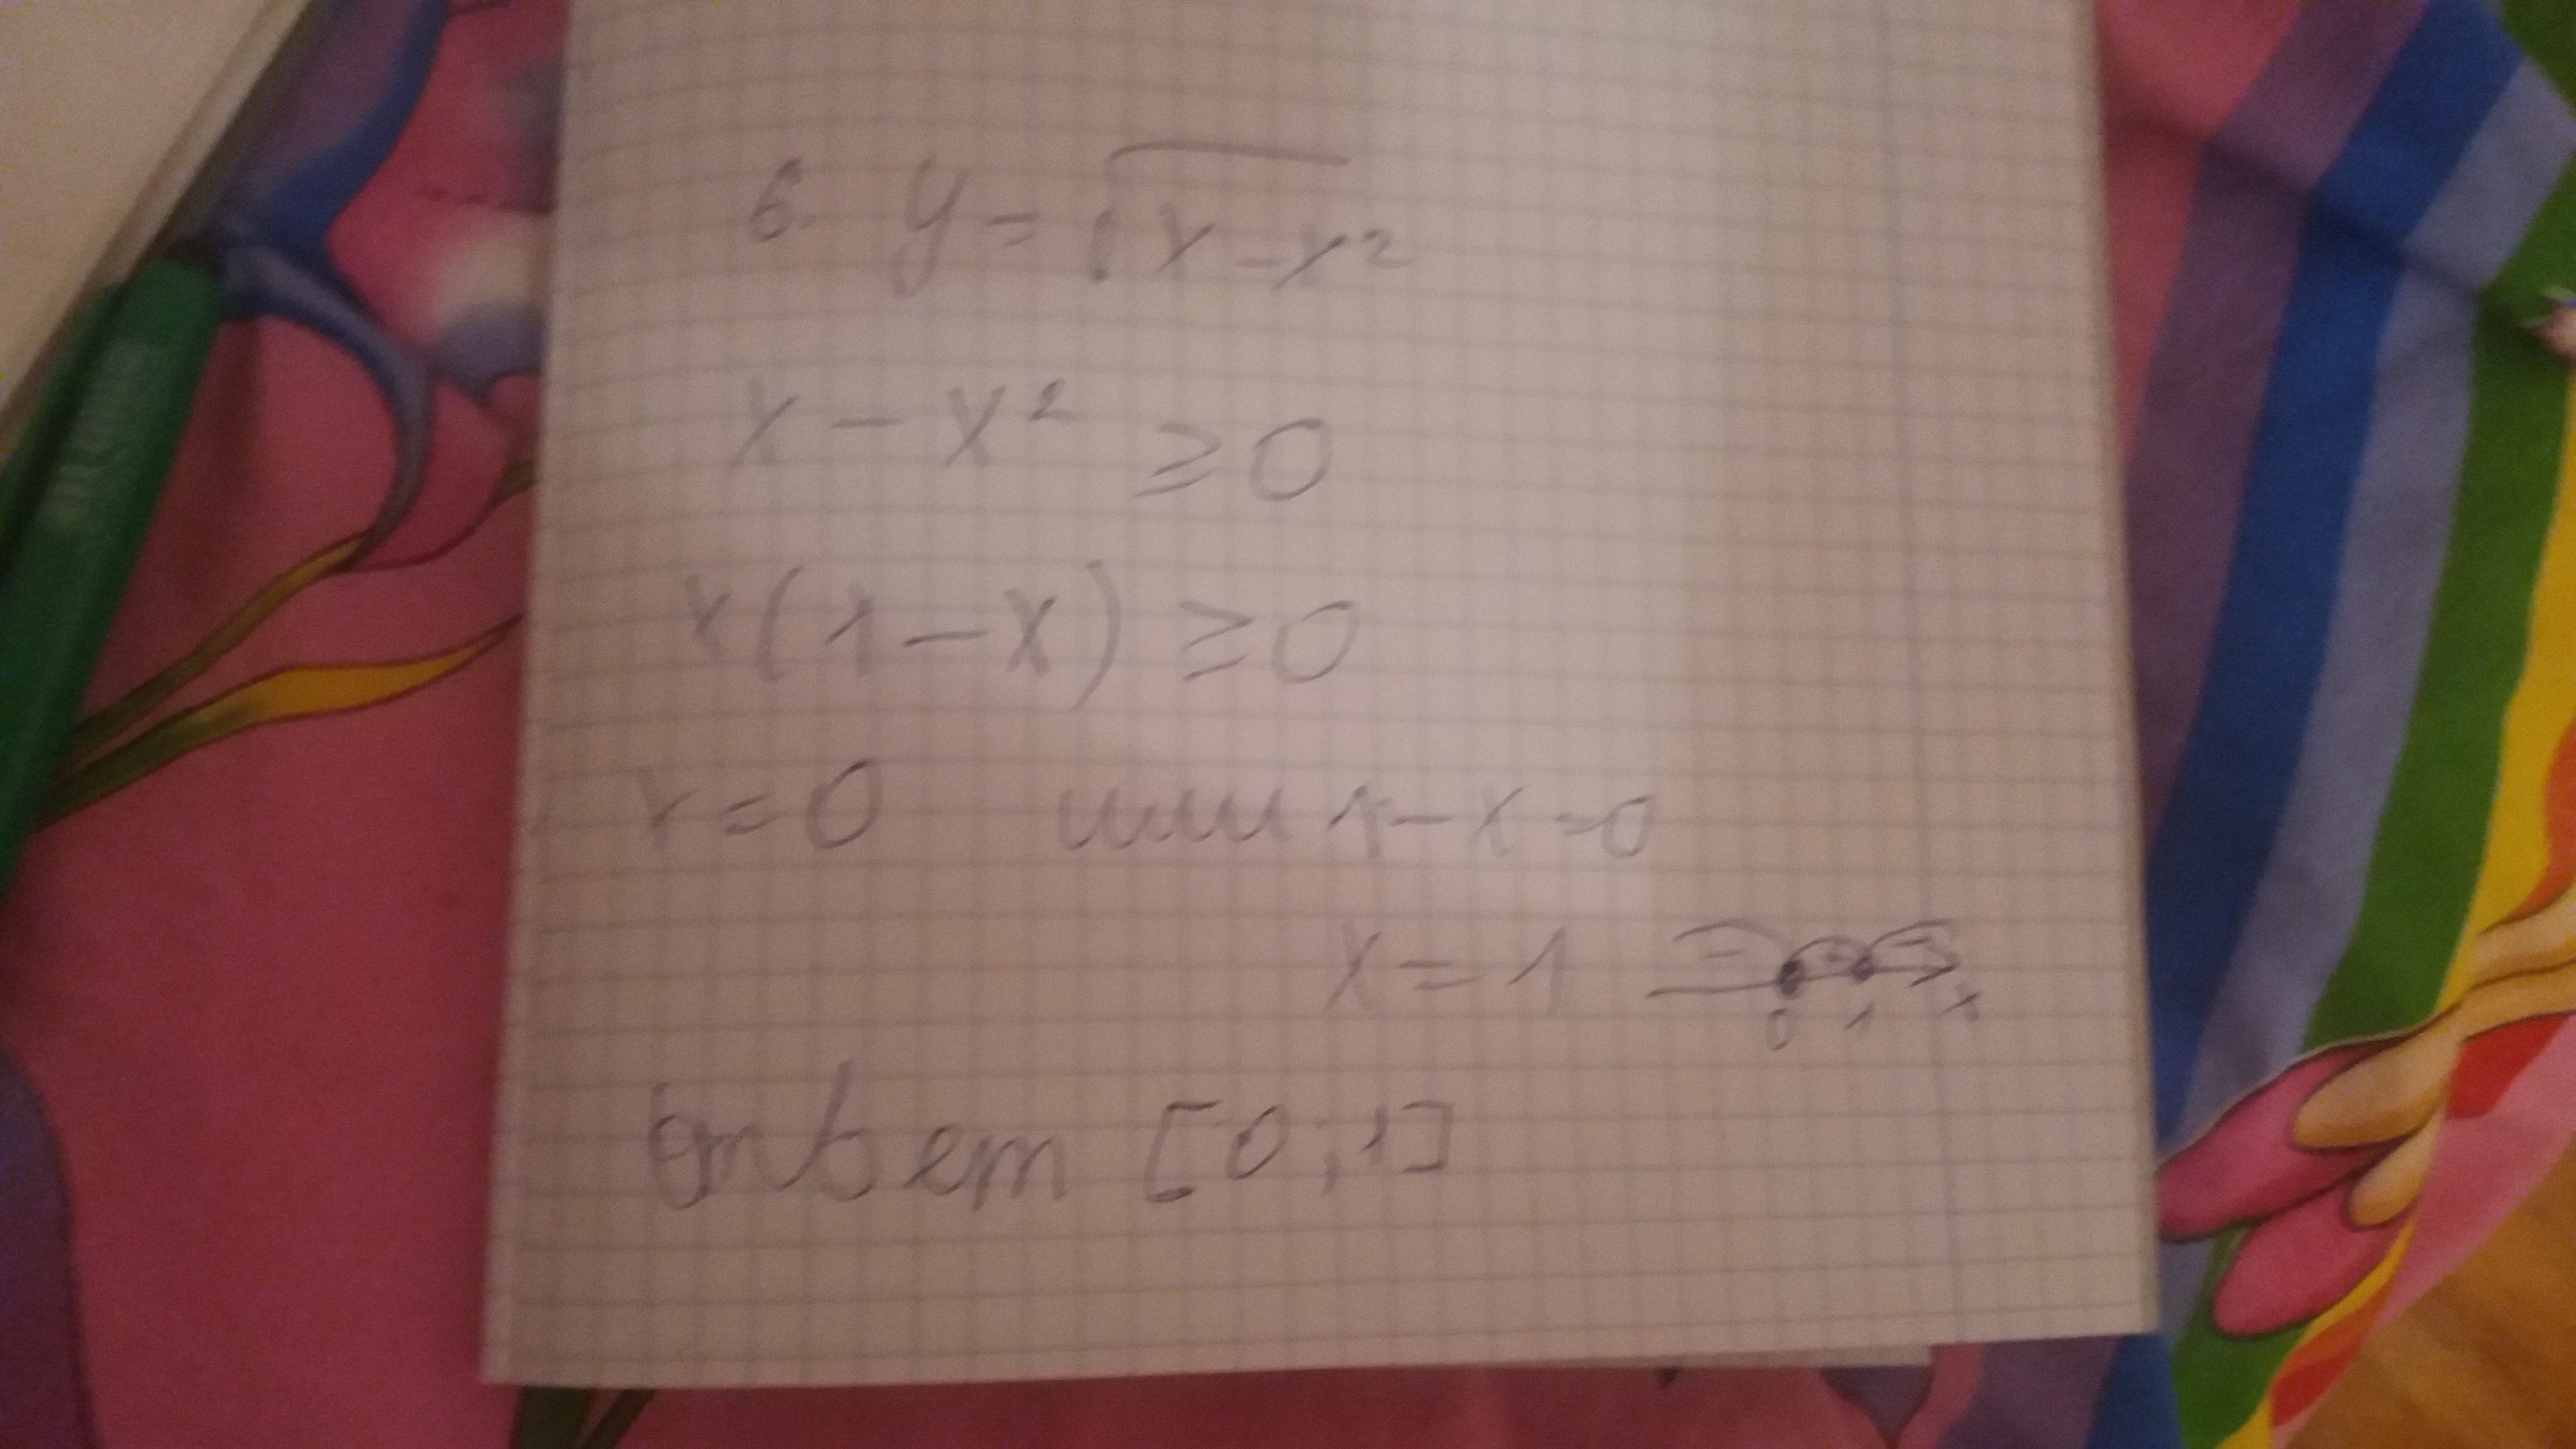 6. y = √x - x²
x - x² ≥ 0
x(1 - x) ≥ 0
x = 0 или 1 - x = 0
x = 1 - + -
0 1 x
Ответ [0; 1]